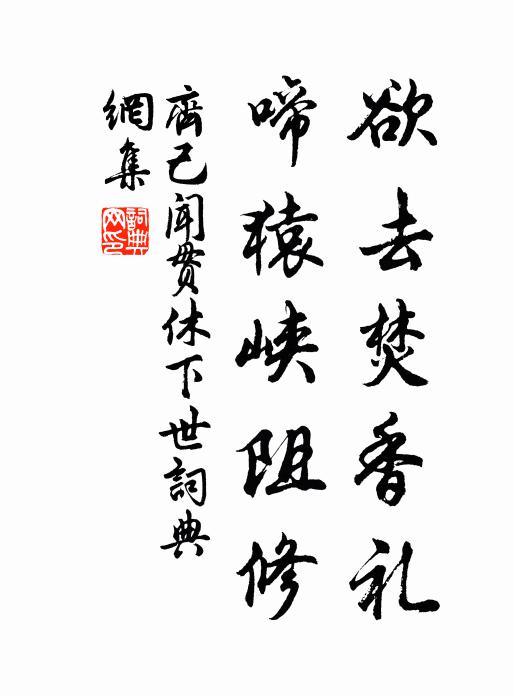 欲去焚香礼
啼猿峡阻修
齊己聞貫休下世詞典
網集
詞典网印